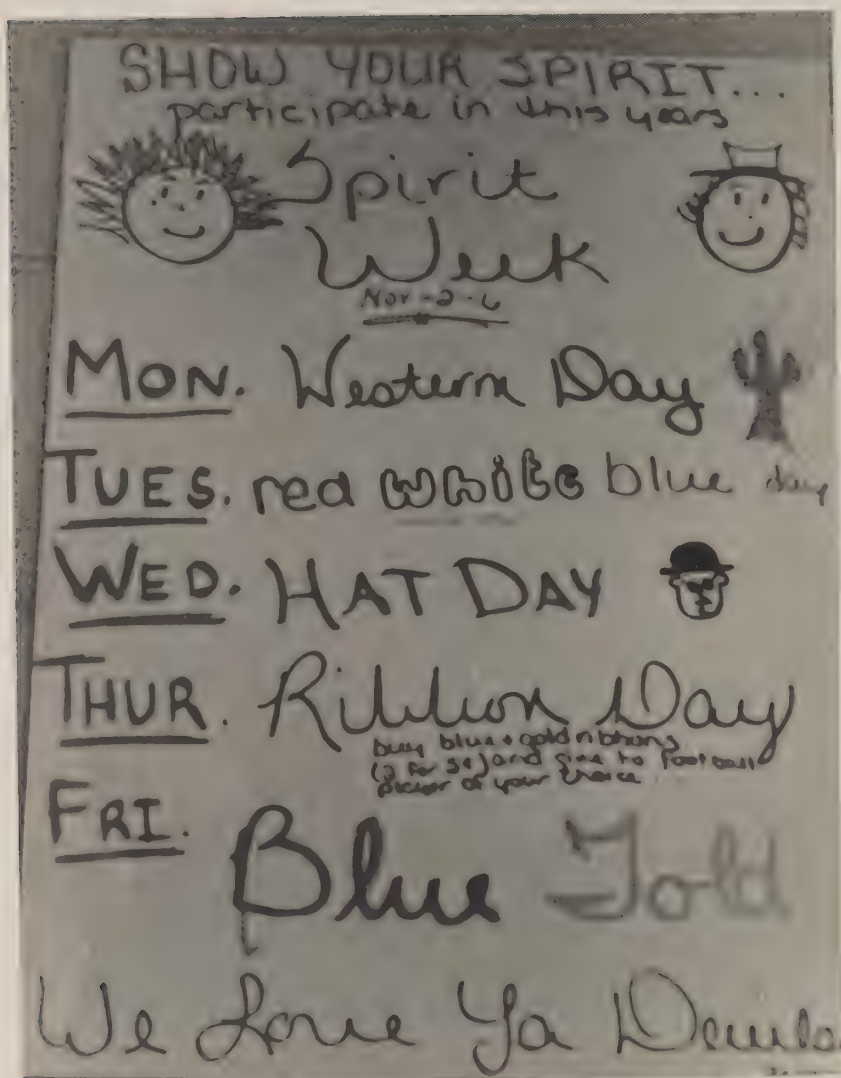 SHOW YOUR SPIRIT...
participate in this years
Spirit
Week
Nov-2-6
MON. Western Day
TUES. red white blue day
WED. HAT DAY
THUR. Ribbon Day
buy blue + gold ribbons
(2 for 5¢) and give to football
player of your choice
FRI. Blue Gold
We Love Ya